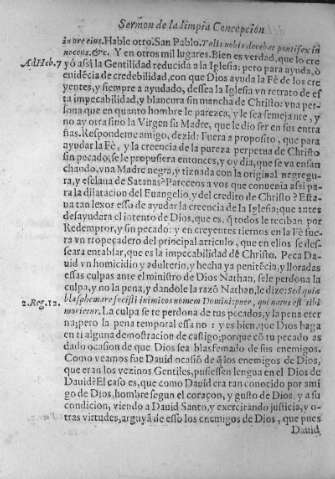 Sermon de la limpia Concepcion
in ore eius. Hable otro San Pablo. Talis nobis decebat pontifex in
nocens, &c. Y en otros mil lugares. Bien es verdad, que lo cre
Ad Heb. 7 yò asi la Gentilidad reducida a la Iglesia: pero para ayuda, ò
euidẽcia de credebilidad, con que Dios ayuda la Fè de los cre
yentes, y siempre a ayudado, dessea la Iglesia vn retrato de es
ta impecabilidad, y blancura sin mancha de Christo: vna per
sona que en quanto hombre le parezca, y le sea semejante, y
no ay otra sino la Virgen su Madre, que le dio ser en sus entra
ñas. Respondeme amigo, dezid: Fuera a proposito, que para
ayudar la Fè, y la creencia de la pureza perpetua de Christo
sin pecado, se le propusiera entonces, y oy dia, que se va ensan
chando, vna Madre negra, y tiznada con la original negregu
ra, y esclaua de Satanas? Pareceos a vos que conuenia assi pa
ra la dilatacion del Euangelio, y del credito de Christo? Esta
ua tan lexos esso de ayudar la creencia de la Iglesia; que antes
desayudara el intento de Dios que es, q̃ todos le reciban por
Redemptor, y sin pecado: y en creyentes tiernos en la Fè fue
ra vn tropeçadero del principal articulo, que en ellos se des-
seara entablar, que es la impecabilidad dè Christo. Peca Da-
uid vn homicidio y adulterio, y hecha ya penitẽcia, y lloradas
essas culpas ante el ministro de Dios Nathan, se le perdona la
culpa, y no la pena, y dandole la razõ Nathan, le dize: Sed quia
2. Reg. 12. blasphemare fecisti inimicos nomem Domini: puer, qui natus est tibi
morietur. La culpa se te perdona de tus pecados, y la pena eter
na; pero la pena temporal essa no: y es bien, que Dios haga
en ti alguna demostracion de castigo; porque cõ tu pecado as
dado ocasion de que Dios sea blasfemado de sus enemigos.
Como veamos fue Dauid ocasiõ de q̃ los enemigos de Dios,
que eran los vezinos Gentiles, pusiessen lengua en el Dios de
Dauid? El caso es, que como Dauid era tan conocido por ami
go de Dios, hombre segun el coraçon, y gusto de Dios, y a su
condicion, viendo a Dauid Santo, y exercitando justicia, y o-
tras virtudes, arguyã de esso los enemigos de Dios, que pues
Dauid